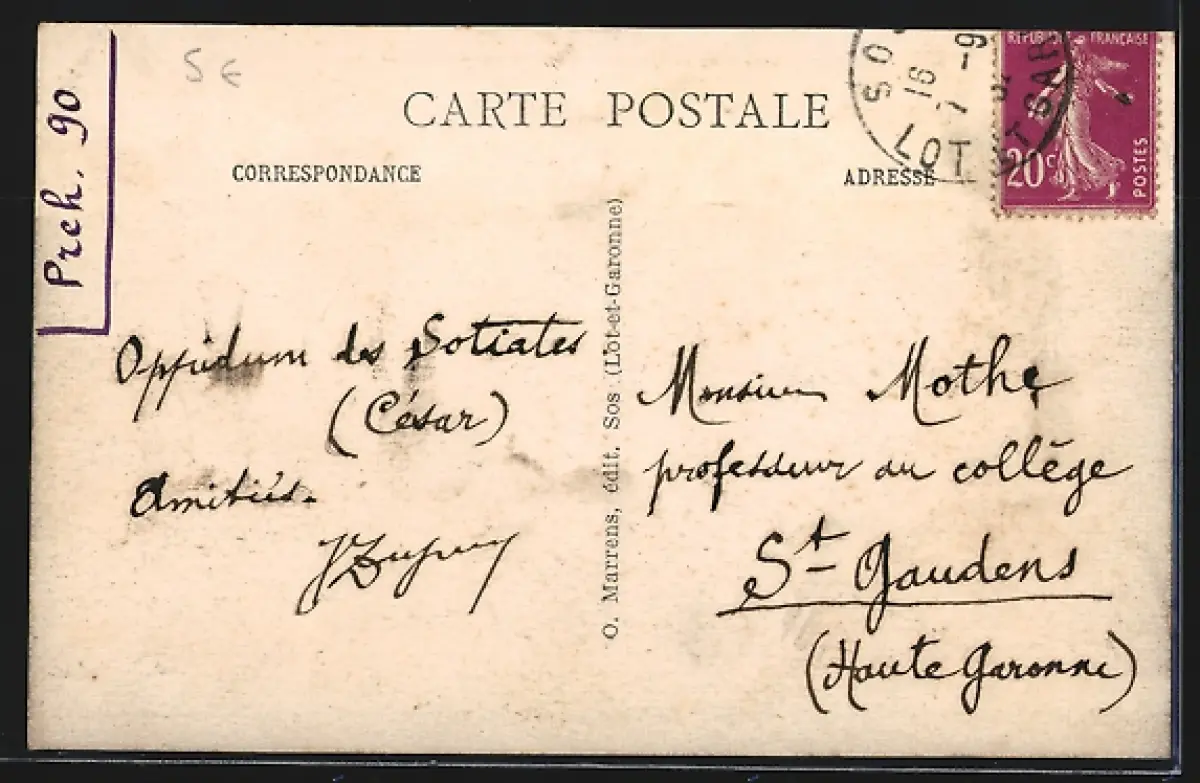 Prch. 90
5 €
CARTE POSTALE
CORRESPONDANCE
ADRESSE
RÉPUBLIQUE FRANÇAISE
20c
POSTES
SOS
16
7
LOT ET GAR
Oppidum des Sotiates
(César)
Amitiés.
JDupuy
O. Marrens, édit. Sos (Lot-et-Garonne)
Monsieur Mothe
professeur au collège
St Gaudens
(Haute Garonne)